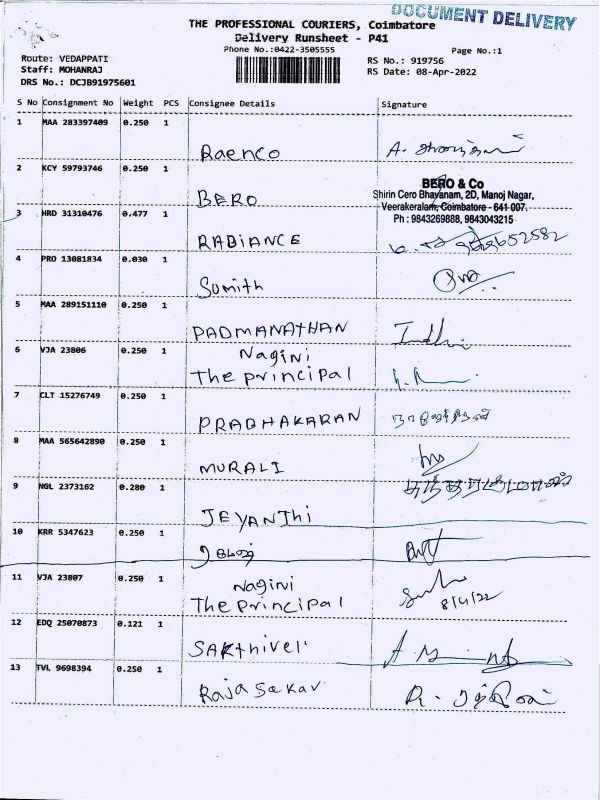 DOCUMENT DELIVERY
THE PROFESSIONAL COURIERS, Coimbatore
Delivery Runsheet - P41
Phone No.:0422-3505555
Page No.:1
Route: VEDAPPATI
Staff: MOHANRAJ
DRS No.: DCJB91975601
RS No.: 919756
RS Date: 08-Apr-2022
S No Consignment No Weight PCS Consignee Details Signature
1 MAA 283397409 0.250 1
Raenco A.
2 KCY 59793746 0.250 1
BERO
BERO & Co
Shirin Cero Bhayanam, 2D, Manoj Nagar,
Veerakeralam, Coimbatore - 641 007.
Ph : 9843269888, 9843043215
3 HRD 31310476 0.477 1
RADIANCE
4 PRO 13081834 0.030 1
Sumith
5 MAA 289151110 0.250 1
PADMANATHAN
6 VJA 23806 0.250 1
Nagini
The principal
7 CLT 15276749 0.250 1
PRABHAKARAN
8 MAA 565642890 0.250 1
MURALI
9 NGL 2373162 0.280 1
JEYANThi
10 KRR 5347623 0.250 1
11 VJA 23807 0.250 1
Nagini
The principal
8/4/22
12 EDQ 25070873 0.121 1
SAKthivel
13 TVL 9698394 0.250 1
Raja Sekar R.